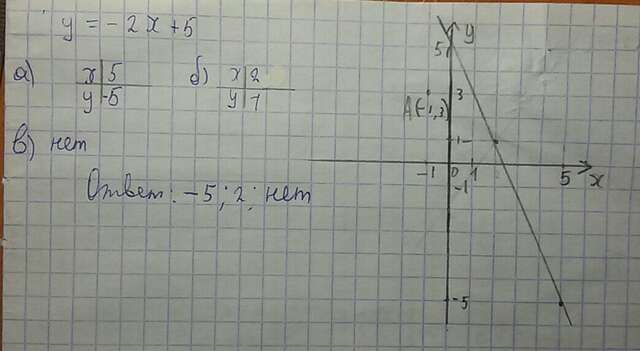 y = -2x+5
а) x | 5
y | -5
б) x | 2
y | 1
в) нет
Ответ: -5; 2; нет
y
5
3
A(-1,3)
1
-1 0 1 5 x
-1
-5